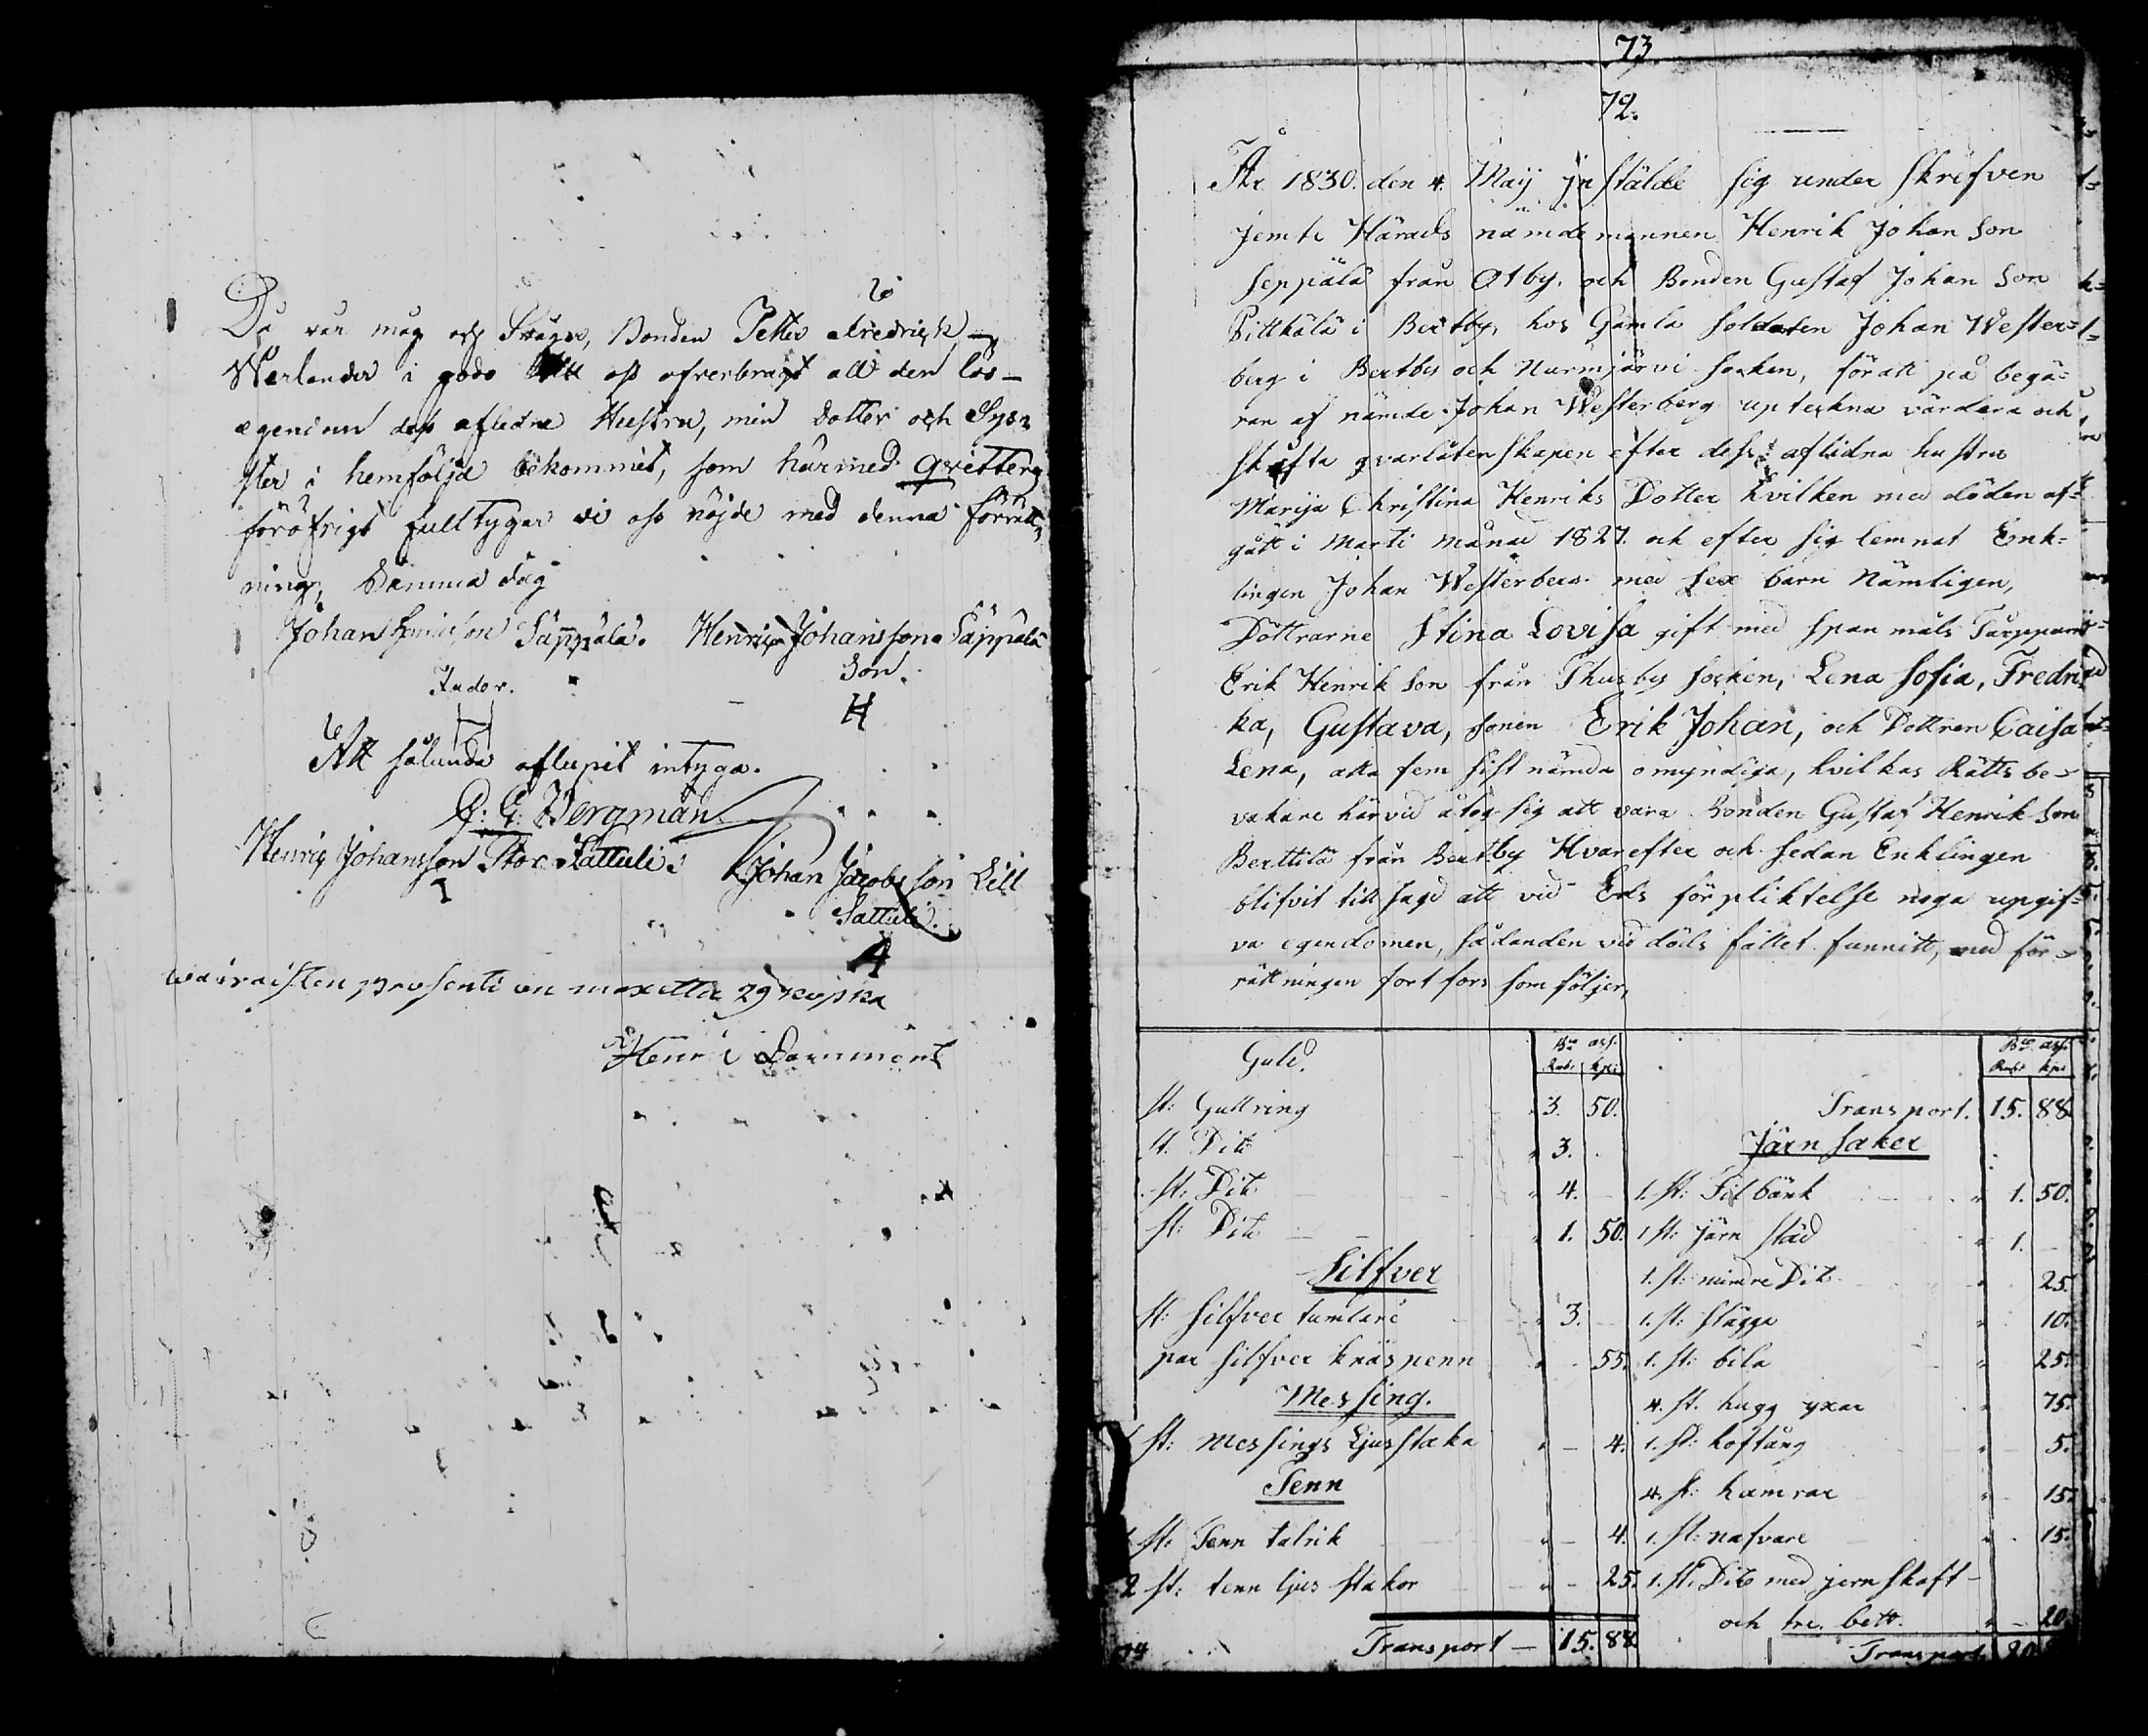 Då vår måg och Svåger, Bonden Petter Fredrick
Werlander i godo till oss öfverbragt all den lös-
egendom dess afledne Heustru, min dotter och Sys-
ster i hemfölja bekommit, som härmed qvitteras
föröfrigt fulltygar vi oss nöjde med denna förrätt-
ning, Samma dag
Johan Henricson Säppälä. Henric Johansson Säppälä
Fader. Son.
H
Att sålunda aflupit intyga.
G: Bergman
Henric Johansson Stor Sattuli. Johan Jacobsson Lill
Sattuli.
waivaisten prosenti on maxettu 29 kopika
Henr
73
72.
År 1830. den 4. Maij jnstälde sig under skrefven
jemte Härads nämdemannen Henrik Johan Son
Seppälä från Otby, och Bonden Gustaf Johan Son
Pittkälä i Bertby, hos Gamla Soldaten Johan Wester-
berg i Bertby och Nurmijärvi Socken, för att på begä-
ran af nämde Johan Westerberg upteckna värdera och
skifta qvarlåtenskapen efter dess aflidna hustru
Marija Christina Henriks Dotter hvilken med döden af-
gått i Marti månad 1827. och efter sig lemnat Enk-
lingen Johan Westerberg med sex barn Nämligen,
Döttrarne Stina Lovisa gift med Span måls Torpparen
Erik Henrik Son från Thusby Socken, Lena Sofia, Fredri
ka, Gustava, Sonen Erik Johan, och Dottren Caisa
Lena, alla fem sist nämda omyndiga, hvilkas Rätts be-
vakare härvid åtog sig att vara Bonden Gustaf Henrik Son
Berttilä från Bertby Hvarefter och sedan Enklingen
blifvit till sagd att vid Eds förpliktelse noga upgif-
va egendomen, sådanden vid döds fallet funnitt, med för-
rättningen fort fors som följer,
Guld. Bco ass. Rub: kpr
St: Gullring 3. 50.
St. Dito 3.
St: Dito 4.
St: Dito 1. 50.
Silfver
St: Silfver tumlare 3.
par Silfver knäspenn 55.
Messing.
St: Messings Ljusstaka 4.
Tenn
St: Tenn talrik 4.
2 St: tenn ljus stakor 25.
Transport 15. 88.
Bco ass. Rub: kpr
Transport. 15. 88
Järn saker
1. St: Filbänk 1. 50.
1 St: Järn städ 1.
1. St: mindre Dito 25.
1. St: Slägga 10.
1. St: bila 25.
4. St. hugg yxar 75.
1. St: hoftång 5.
4. St: hamrar 15.
1. St: nafvare 15.
1. St: Dito med jern Skaft
och tre bett. 20.
Transport 20.